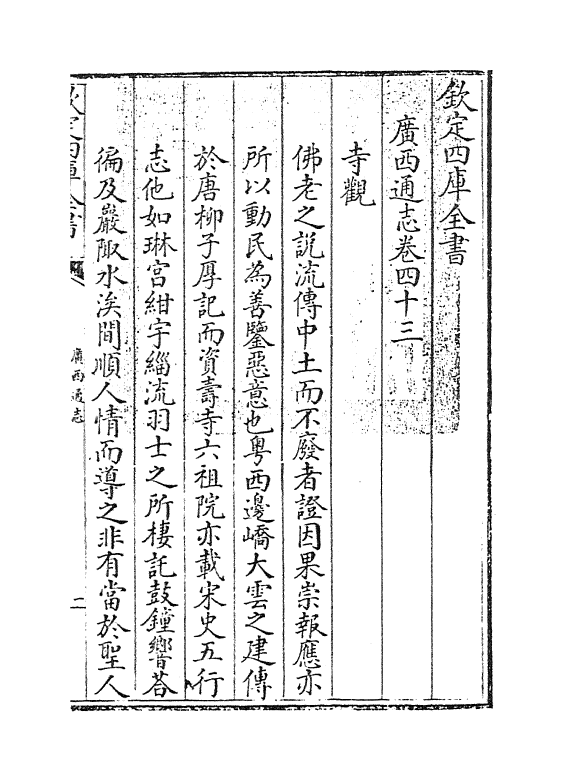 欽定四庫全書
廣西通志卷四十三
寺觀
佛老之説流傳中土而不廢者證因果崇報應亦
所以動民為善鑒惡意也粤西邊嶠大雲之建傳
於唐柳子厚記而資壽寺六祖院亦載宋史五行
志他如琳宮紺宇緇流羽士之所棲託鼓鐘響荅
徧及巖陬水涘間順人情而導之非有當於聖人
欽定四庫全書
廣西通志